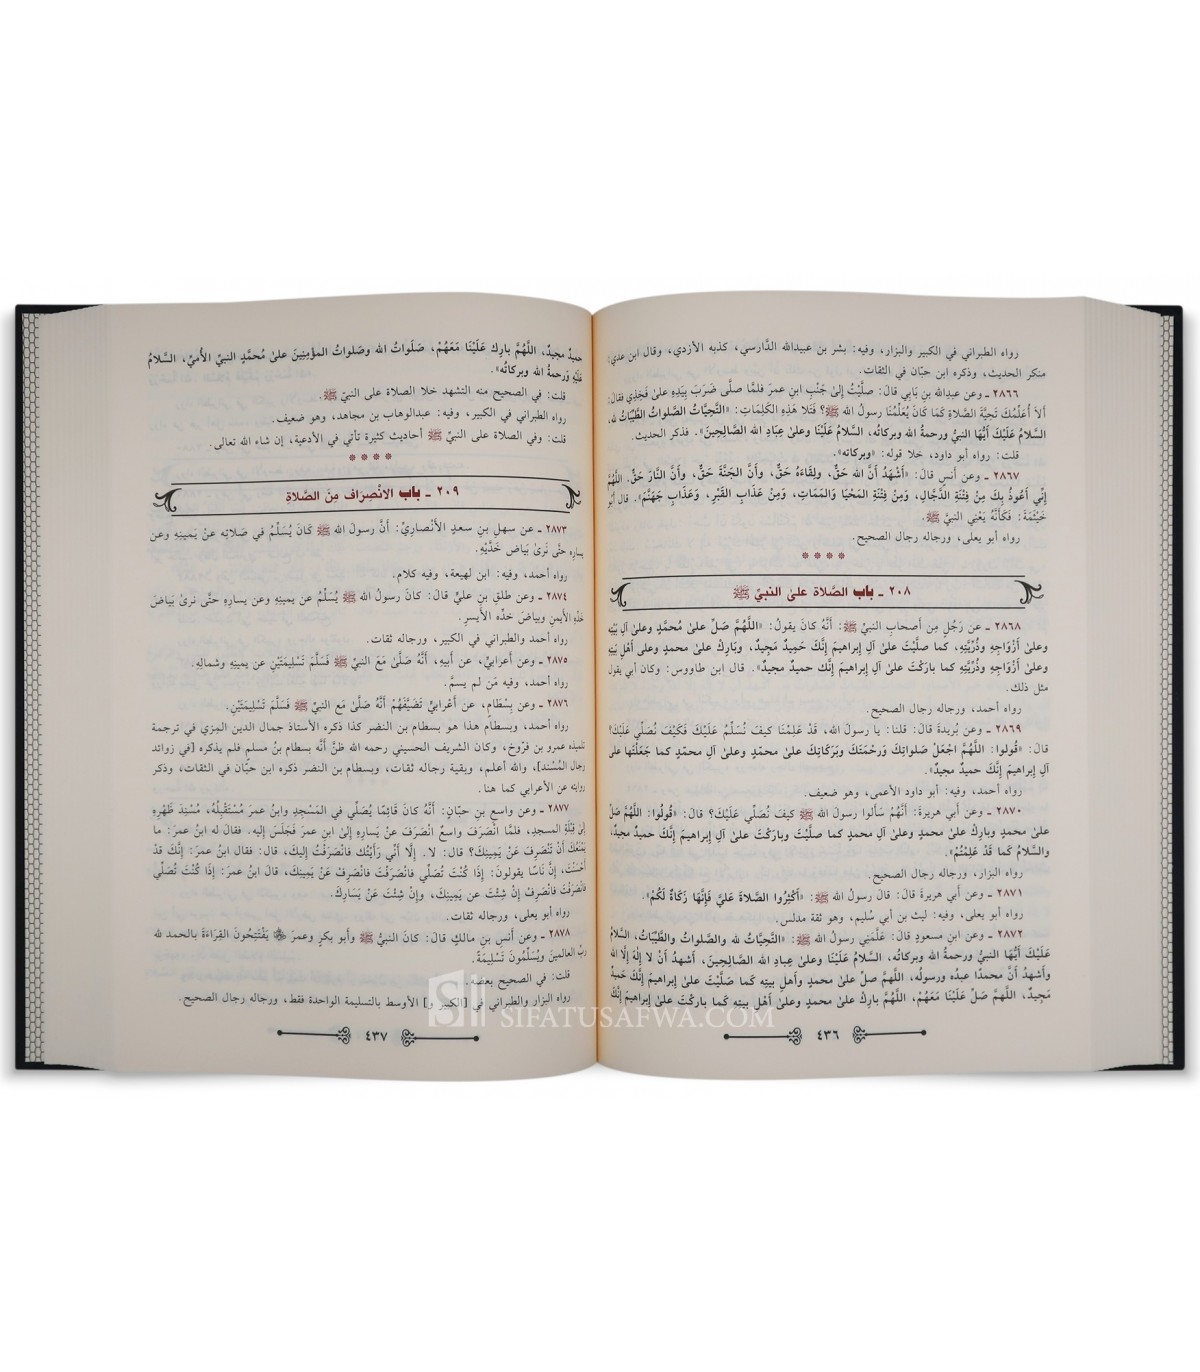 رواه الطبراني في الكبير والبزار، وفيه: بشر بن عبيدالله الدَّارسي، كذبه الأزدي، وقال ابن عدي:
منكر الحديث، وذكره ابن حبّان في الثقات.
٢٨٦٦ ـ وعن عبدِالله بنِ بَابي قالَ: صلَّيْتُ إلىٰ جَنْبِ ابنِ عمرَ فلمَّا صلَّى ضَرَبَ بِيَدِهِ علىٰ فَخِذي فقالَ:
ألاَ أُعَلِّمُكَ تَحِيَّةَ الصَّلاَةِ كَمَا كَانَ يُعَلِّمُنَا رسولُ الله ﷺ؟ فَتَلا هَذِهِ الكَلِمَاتِ: «التَّحِيَّاتُ الصَّلواتُ الطَّيِّبَاتُ لله،
السَّلامُ عَلَيْكَ أَيُّهَا النبيُّ ورحمةُ الله وبركاتُه، السَّلامُ عَلَيْنَا وعلىٰ عِبَادِ الله الصَّالِحِينَ». فذكر الحديث.
قلت: رواه أبو داود، خلا قوله: «وبركاته».
٢٨٦٧ ـ وعن أنسٍ قالَ: «أَشْهَدُ أَنَّ الله حَقٌّ، ولِقَاءَهُ حَقٌّ، وأَنَّ الجَنَّةَ حَقٌّ، وأَنَّ النارَ حَقٌّ. اللَّهُمَّ
إِنِّي أَعُوذُ بِكَ مِنْ فِتْنَةِ الدَّجَّالِ، وَمِنْ فِتْنَةِ المَحْيَا وَالمَمَاتِ، وَمِنْ عَذَابِ القَبْرِ، وَعَذَابِ جَهَنَّمَ». قال أبو
خَيْثَمَةَ: فَكَأَنَّهُ يَعْنِي النبيَّ ﷺ.
رواه أبو يعلى، ورجاله رجال الصحيح.
٢٠٨ ـ باب الصَّلاة علىٰ النبيِّ ﷺ
٢٨٦٨ ـ عن رَجُلٍ مِن أَصحابِ النبيِّ ﷺ: أَنَّهُ كانَ يقولُ: «اللَّهُمَّ صَلِّ علىٰ محمَّدٍ وعلىٰ آلِ بَيْتِهِ
وعلىٰ أَزْوَاجِهِ وذُرِّيَّتِهِ، كما صَلَّيْتَ علىٰ آلِ إبراهيمَ إِنَّكَ حَمِيدٌ مَجِيدٌ، وبَارِكْ علىٰ محمدٍ وعلى أَهْلِ بَيْتِهِ
وعلىٰ أَزْوَاجِهِ وذُرِّيَّتِهِ كما بارَكْتَ علىٰ آلِ إبراهيمَ إنَّك حميدٌ مجيدٌ». قال ابن طاووس: وكان أبي يقول
مثل ذلك.
رواه أحمد، ورجاله رجال الصحيح.
٢٨٦٩ ـ وعن بُريدةَ قالَ: قلنا: يا رسولَ الله، قَدْ عَلِمْنا كيفَ نُسَلِّمُ عَلَيْكَ فَكَيْفَ نُصَلِّي عَلَيْكَ؟
قالَ: «قُولوا: اللَّهُمَّ اجْعَلْ صَلَواتِكَ وَرَحْمَتَكَ وبَرَكَاتِكَ علىٰ محمّدٍ وعلىٰ آلِ محمدٍ كما جَعَلْتَها علىٰ
آلِ إبراهيمَ إِنَّكَ حميدٌ مجيدٌ».
رواه أحمد، وفيه: أبو داود الأعمى، وهو ضعيف.
٢٨٧٠ ـ وعن أبي هريرةَ: أَنَّهُمْ سَألوا رسولَ الله ﷺ كيفَ نُصَلِّي عَلَيْكَ؟ قالَ: «قُولُوا: اللَّهُمَّ صَلِّ
علىٰ محمدٍ وبارِكْ علىٰ محمدٍ وعلىٰ آلِ محمدٍ كما صلَّيْتَ وباركْتَ علىٰ آلِ إبراهيمَ إنَّكَ حميدٌ مجيدٌ،
والسَّلامُ كما قَدْ عَلِمْتُمْ».
رواه البزار، ورجاله رجال الصحيح.
٢٨٧١ ـ وعن أبي هريرةَ قالَ: قالَ رسولُ الله ﷺ: «أَكْثِرُوا الصَّلاةَ عَلَيَّ فإنَّهَا زَكَاةٌ لَكُمْ».
رواه أبو يعلى، وفيه: ليث بن أبي سُليم، وهو ثقة مدلس.
٢٨٧٢ ـ وعن ابنِ مسعودٍ قالَ: عَلَّمَنِي رسولُ الله ﷺ: «التَّحِيَّاتُ لله والصَّلَواتُ والطَّيِّبَاتُ، السَّلامُ
عَلَيْكَ أَيُّهَا النبيُّ ورحمةُ الله وبركاتُه، السَّلامُ عَلَيْنَا وعلىٰ عِبَادِ الله الصَّالِحِينَ، أَشهدُ أَنْ لا إلٰهَ إلَّا الله
وأَشهدُ أَنَّ محمدًا عبدُه ورسولُه، اللَّهُمَّ صلِّ علىٰ محمدٍ وأَهلِ بيتِه كما صَلَّيْتَ علىٰ إبراهيمَ إنَّكَ حَمِيدٌ
مَجِيدٌ، اللَّهُمَّ صَلِّ عَلَيْنَا مَعَهُمْ، اللَّهُمَّ بارِكْ علىٰ محمدٍ وعلىٰ أَهْلِ بيتِهِ كما باركْتَ علىٰ إبراهيمَ إنَّكَ
٤٣٦
حميدٌ مجيدٌ، اللَّهُمَّ بارِك عَلَيْنَا مَعَهُمْ، صَلَواتُ الله وصَلواتُ المؤْمِنِينَ علىٰ مُحمَّدٍ النبيِّ الأُمِّيِّ، السَّلامُ
عَلَيْهِ وَرَحمةُ الله وبركاتُه».
قلت: في الصحيح منه التشهد خلا الصلاة على النبيِّ ﷺ.
رواه الطبراني في الكبير، وفيه: عبدالوهاب بن مجاهد، وهو ضعيف.
قلت: وفي الصلاة على النبيِّ ﷺ أحاديث كثيرة تأتي في الأدعية، إن شاء الله تعالى.
٢٠٩ ـ باب الانْصِرَاف مِنَ الصَّلاةِ
٢٨٧٣ ـ عن سهلِ بنِ سعدٍ الأَنْصاريِّ: أَنَّ رسولَ الله ﷺ كَانَ يُسَلِّمُ في صَلاتِه عنْ يَمِينِهِ وعن
يسارِه حتَّى نَرىٰ بَيَاضَ خَدَّيْهِ.
رواه أحمد، وفيه: ابن لهيعة، وفيه كلام.
٢٨٧٤ ـ وعن طلقِ بنِ عليٍّ قالَ: كانَ رسولُ الله ﷺ يُسَلِّمُ عن يمينِه وعن يسارِه حتَّى نرىٰ بَيَاضَ
خَدِّهِ الأَيمنِ وبياضَ خدِّه الأَيسرِ.
رواه أحمد والطبراني في الكبير، ورجاله ثقات.
٢٨٧٥ ـ وعن أعرابيٍّ، عن أَبيهِ، أَنَّهُ صَلَّىٰ مَعَ النبيِّ ﷺ فَسَلَّمَ تَسْلِيمَتَيْنِ عن يمينِه وشمالِه.
رواه أحمد، وفيه مَن لم يسمَّ.
٢٨٧٦ ـ وعن بِسْطَامٍ، عن أَعْرَابيٍّ تَضَيَّفَهُمْ أَنَّهُ صَلىٰ مَع النبيِّ ﷺ فَسَلَّمَ تَسْلِيمَتَيْنِ.
رواه أحمد، وبسطام هذا هو بسطام بن النضر كذا ذكره الأستاذ جمال الدين المِزي في ترجمة
تلميذه عمرو بن فرّوخ، وكان الشريف الحسيني رحمه الله ظنَّ أَنَّه بسطام بنُ مسلم فلم يذكره [في زوائد
رجال المُسْنَد]، والله أعلم، وبقية رجاله ثقات، وبسطام بن النضر ذكره ابن حبَّان في الثقات، وذكر
روايته عن الأعرابي كما هنا.
٢٨٧٧ ـ وعن واسعِ بنِ حبّانَ: أَنَّهُ كانَ قَائِمًا يُصَلِّي في المَسْجِدِ وابنُ عمرَ مُسْتَقْبِلُهُ، مُسْنِدَ ظَهْرِهِ
إلىٰ قِبْلَةِ المسجدِ، فلمَّا انْصَرَفَ واسعٌ انْصَرَفَ عَنْ يَسارِهِ إلى ابنِ عمرَ فَجَلَسَ إليه. فقال له ابنُ عمرَ: ما
يَمْنَعُكَ أَنْ تَنْصَرِفَ عَنْ يَمِينِكَ؟ قال: لا. إلّا أَنِّي رَأَيْتُك فانْصَرَفْتُ إليكَ، قال: فقال ابنُ عمرَ: إنَّكَ قَدْ
أَحْسَنْتَ، إِنَّ نَاسًا يقولونَ: إذَا كُنْتَ تُصَلِّي فانْصَرَفْتَ فانْصَرِفْ عَنْ يَمِينِكَ، قَالَ ابنُ عمرَ: إذَا كُنْتَ تُصَلِّي
فانْصَرَفْتَ فانْصَرِفْ إِنْ شِئْتَ عَنْ يَمِينِكَ، وإِنْ شِئْتَ عَنْ يَسَارِكَ.
رواه أبو يعلى، ورجاله ثقات.
٢٨٧٨ ـ وعن أنَسِ بنِ مالكٍ قالَ: كانَ النبيُّ ﷺ وأَبو بكرٍ وعمرَ يَفْتَتِحُونَ القِرَاءَةَ بالحمد لله
ربِّ العالمينَ ويُسَلِّمُونَ تَسْلِيمَةً.
قلت: في الصحيح بعضه.
رواه البزار والطبراني في [الكبير و] الأوسط بالتسليمة الواحدة فقط، ورجاله رجال الصحيح.
٤٣٧
SIFATUSAFWA.COM